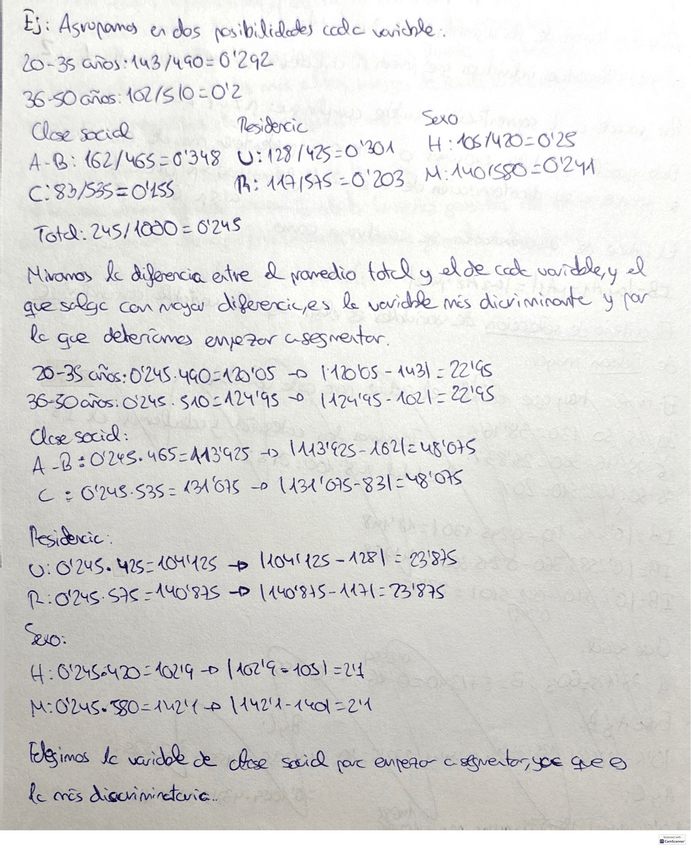 Ej: Agrupamos en dos posibilidades cada variable.
20-35 años: 143/490=0'292
36-50 años: 102/510=0'2
Clase social
A-B: 162/465=0'348
C: 83/535=0'155
Residencia
U: 128/425=0'301
R: 117/575=0'203
Sexo
H: 105/420=0'25
M: 140/580=0'241
Total: 245/1000=0'245
Miramos la diferencia entre el promedio total y el de cada variable, y el
que salga con mayor diferencia, es la variable más discriminante y por
la que deberíamos empezar a segmentar.
20-35 años: 0'245·490=120'05 → |120'05-143|=22'95
36-50 años: 0'245·510=124'95 → |124'95-102|=22'95
Clase social:
A-B: 0'245·465=113'925 → |113'925-162|=48'075
C: 0'245·535=131'075 → |131'075-83|=48'075
Residencia:
U: 0'245·425=104'125 → |104'125-128|=23'875
R: 0'245·575=140'875 → |140'875-117|=23'875
Sexo:
H: 0'245·420=102'9 → |102'9-105|=2'1
M: 0'245·580=142'1 → |142'1-140|=2'1
Elegimos la variable de clase social para empezar a segmentar, ya que es
la más discriminatoria.
Scanned with
CamScanner